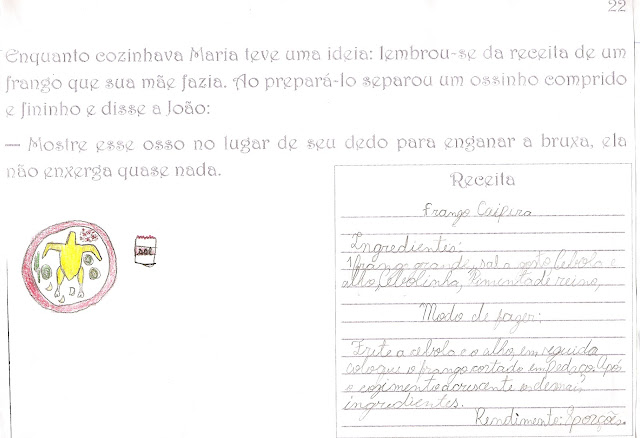 22
Enquanto cozinhava Maria teve uma ideia: lembrou-se da receita de um
frango que sua mãe fazia. Ao prepará-lo separou um ossinho comprido
e fininho e disse a João:
— Mostre esse osso no lugar de seu dedo para enganar a bruxa, ela
não enxerga quase nada.
sal
Receita
Frango Caipira
Ingredientes:
1 frango grande, sal a gosto, Cebola e
alho, Cebolinha, Pimenta de reino,
Modo de fazer:
Frite a cebola e o alho, em seguida
coloque o frango cortado em pedaços. Após
o cozimento acrescente os demais
ingredientes.
Rendimento: 8 porções.